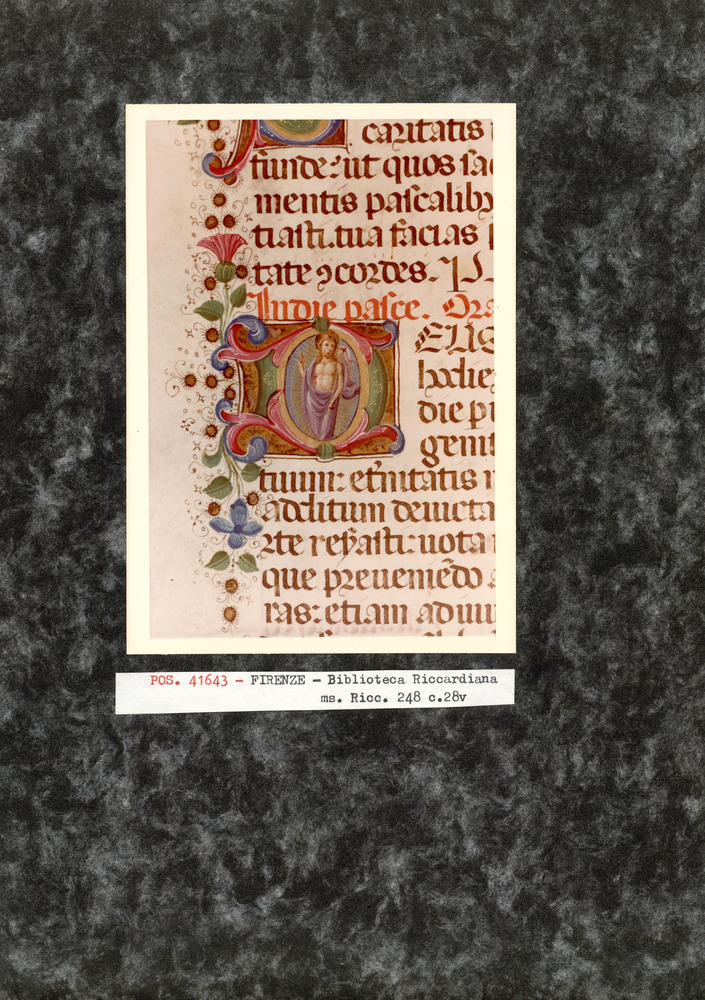 caritatis
funde: ut quos sac
mentis pascalibꝫ
tiasti. tua facias
tate ꝯcordes. P
In die pasce. Ora
DEUS
hodie
die p
genit
tuum: et̃nitatis
aditum deuicta
rte res̃asti: uota
que preueniẽdo
ras: etiam adiuu
POS. 41643 - FIRENZE - Biblioteca Riccardiana
ms. Ricc. 248 c.28v